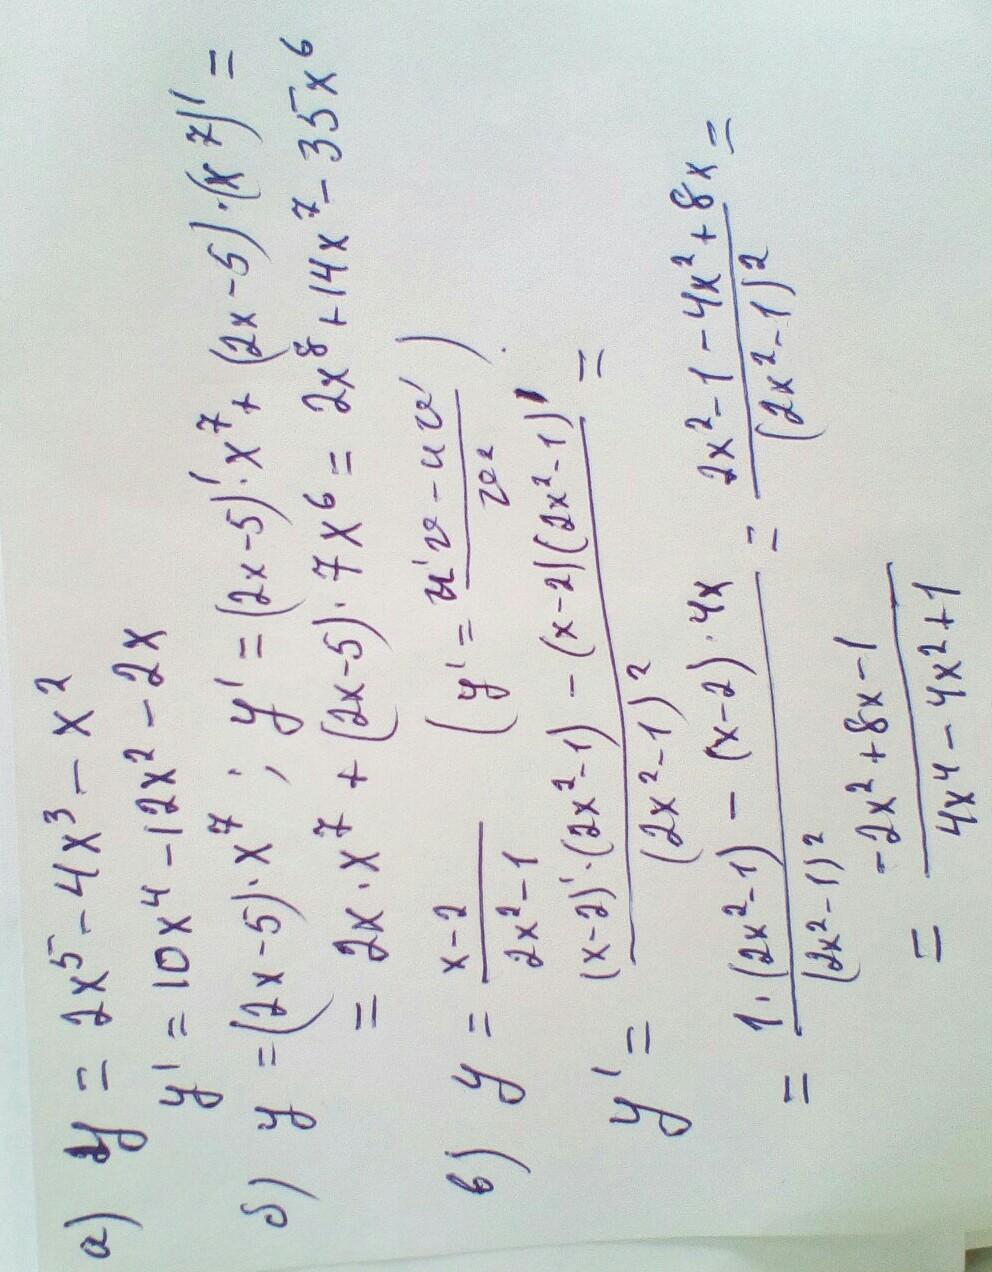 а) y = 2x⁵ - 4x³ - x²
y' = 10x⁴ - 12x² - 2x
б) y = (2x-5)·x⁷ ; y' = (2x-5)'·x⁷ + (2x-5)·(x⁷)' =
= 2x·x⁷ + (2x-5)·7x⁶ = 2x⁸ + 14x⁷ - 35x⁶
в) y = (x-2)/(2x²-1) (y' = (u'v - uv')/v²)
y' = ((x-2)'·(2x²-1) - (x-2)(2x²-1)')/(2x²-1)² =
= (1·(2x²-1) - (x-2)·4x)/(2x²-1)² = (2x²-1-4x²+8x)/(2x²-1)² =
= (-2x²+8x-1)/(4x⁴-4x²+1)